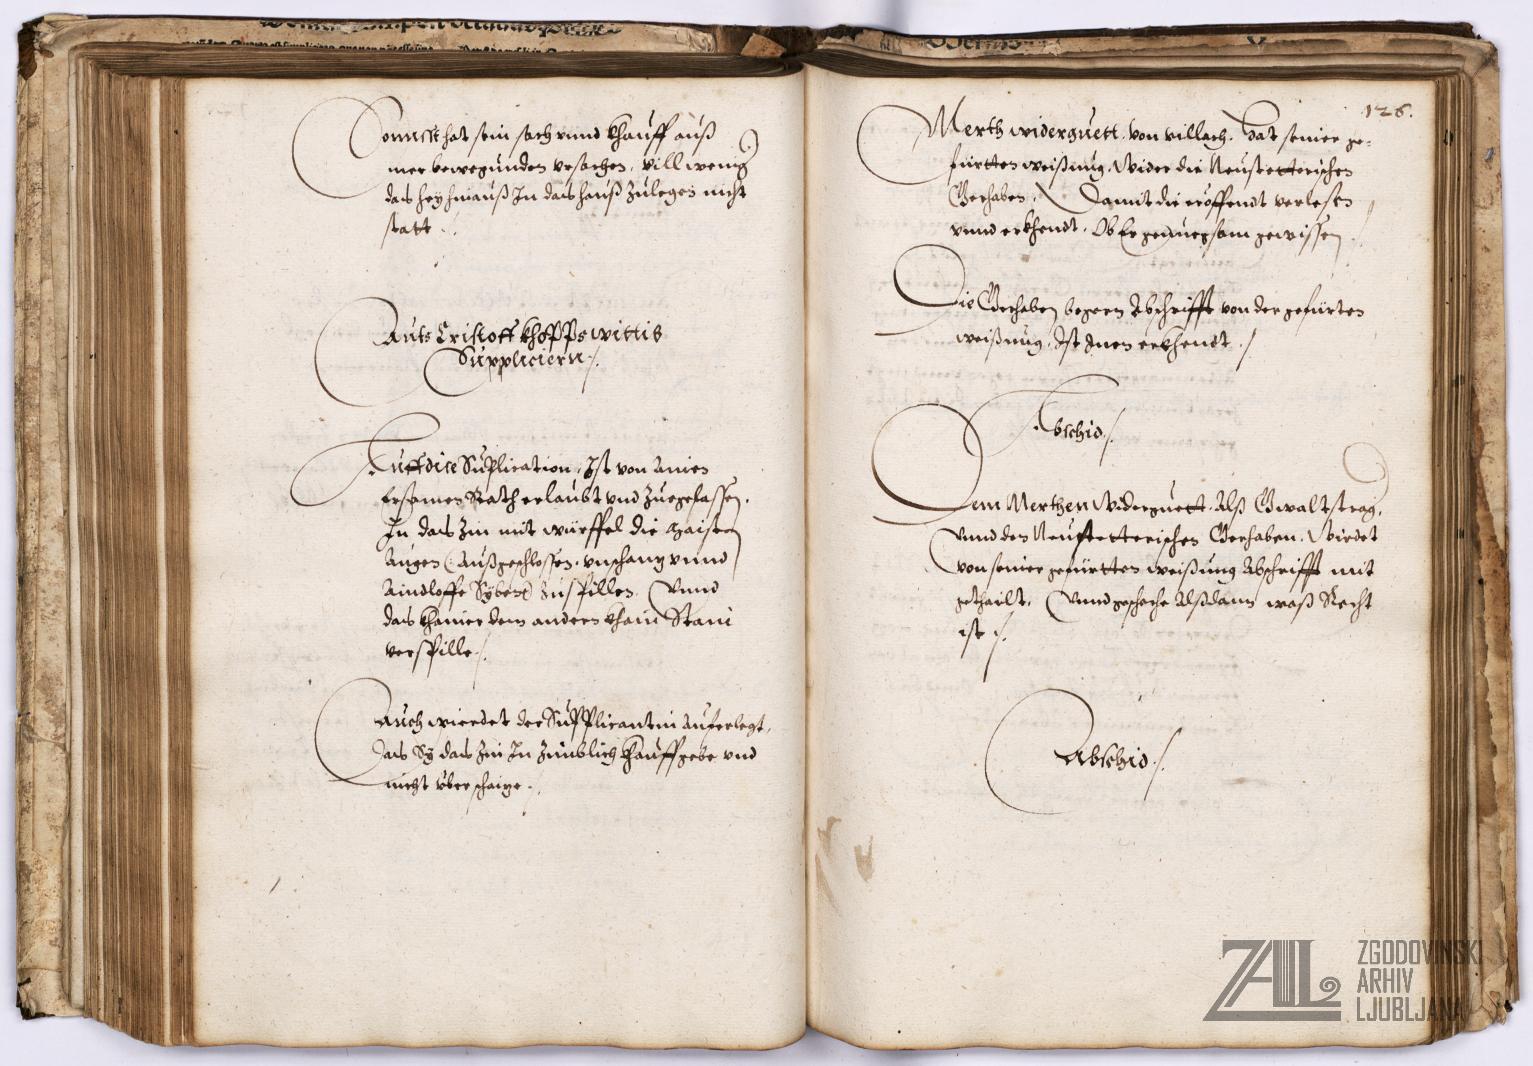 Sonnst hat sein sach vnnd khauff auß
mer bewegunden vrsachen, vill wenig
das heyhinauß In das hauß Zulegen nicht
statt ./.
Auf Cristoff
Suppliciern ./.
Auff dise Suplication, Ist von Ainem
Ersamen Rath erlaubt vnd Zuegelassen,
In das Zin mit würffel die maisten
Augen (Außgeschlossen, vnschanz vnnd
Aindloffe Syben) Zu spillen, Vnnd
das khainer dem andern khain Stain
verspille ./.
Auch wierdet der Supplicantin Auferlegt,
das Sy das Zin In Zimblich khauff gebe vnd
nicht vberschaze ./.
126.
Merth widerguett, von villach, hat seiner ge-
fürtten weißung, Wider die Neustetterischen
Gerhaben, Damit die eröffendt verlesen
vnnd erkhendt, Ob Er genuegsam gewissen ./.
Die Gerhaben begern Abschrifft von der gefürten
weißung, Ist Inen erkhendt ./.
Abschid ./.
Dem Merthen Widerguett, Alß Gwaltstrag,
Vnnd den Neustetterischen Gerhaben, Wirdet
von seiner gefüertten weißung Abschrifft mit
getheilt, Vnnd geschehe Alßdann waß Recht
ist ./.
Abschid ./.
ZAL
ZGODOVINSKI
ARHIV
LJUBLJANA